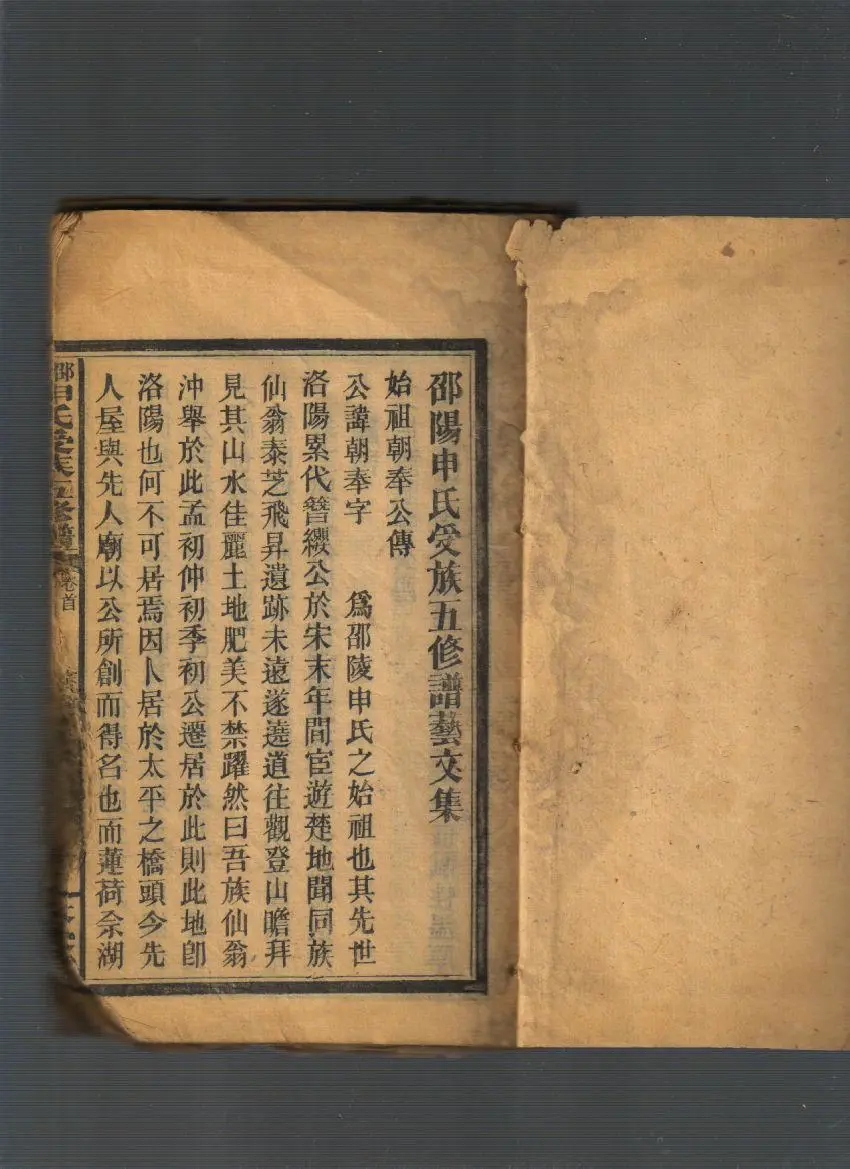 邵陽申氏受族五修譜藝文集
始祖朝奉公傳
公諱朝奉字　為邵陵申氏之始祖也其先世
洛陽累代簪纓公於宋末年間宦遊楚地聞同族
仙翁泰芝飛昇遺跡未遠遂遶道往觀登山瞻拜
見其山水佳麗土地肥美不禁躍然曰吾族仙翁
沖舉於此孟初仲初季初公遷居於此則此地卽
洛陽也何不可居焉因卜居於太平之橋頭今先
人屋與先人廟以公所創而得名也而蓮荷佘湖
邵申氏受族五修譜 卷首